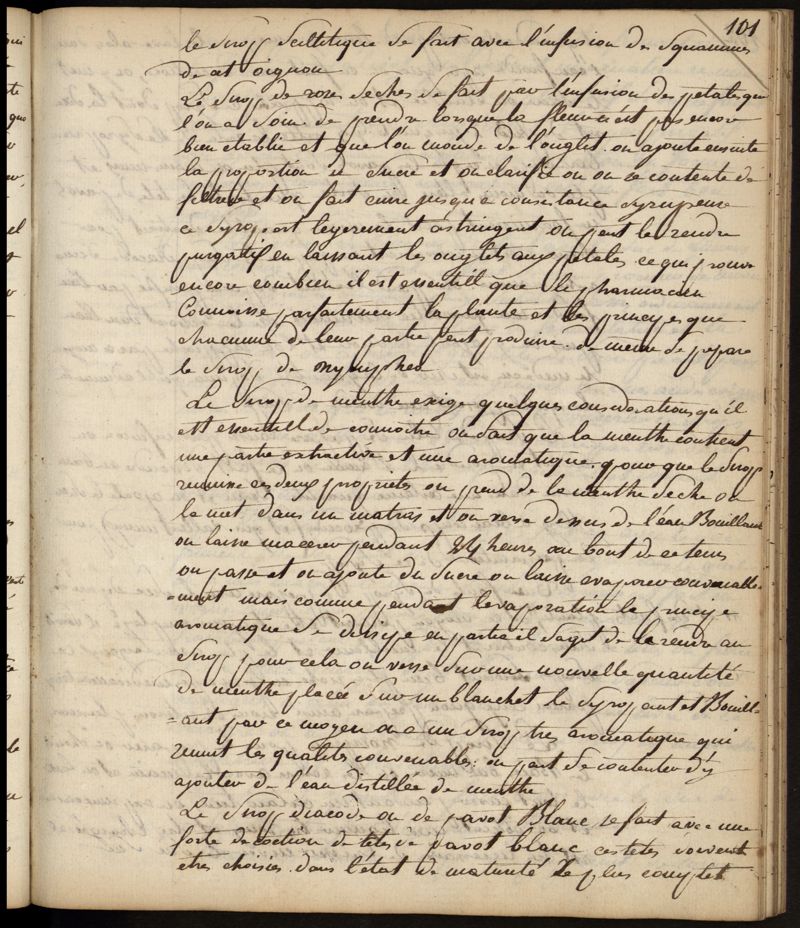 101
le sirop scillitique se fait avec l'infusion des squammes
de cet oignon
Le sirop de roses seches se fait par l'infusion des petales que
l'on a soin de prendre lorsque la fleur n'est pas encore
bien etablie et que l'on monde de l'onglet. on ajoute ensuite
la proportion de sucre et on clarifie ou on se contente de
filtrer et on fait cuire jusqu'a consistance syrupeuse
ce syrop est legerement astringent on peut le rendre
purgatif en laissant les onglets aux petales. ce qui prouve
encore combien il est essentiell que le pharmacien
Connoisse parfaitement la plante et les principes que
chacunne de leur partie peut produire. de meme se prepare
le sirop de nymphea
Le sirop de menthe exige quelques considerations qu'il
est essentiell de connoitre on sait que la menthe contient
une partie extractive et une aromatique. pour que le sirop
reunisse ces deux proprietés on prend de la menthe seche on
la met dans un matras et on verse dessus de l'eau Bouillante
on laisse macerer pendant 24 heures au bout de ce tems
on passe et on ajoute du sucre on laisse evaporer convenable-
-ment mais comme pendant l'evaporation le principe
aromatique se dissipe en partie il s'agit de le rendre au
sirop pour cela on verse sur une nouvelle quantité
de menthe placée sur un blanchet le syrop cuit et Bouill-
-ant par ce moyen on a un sirop tres aromatique qui
reunit les qualités convenables: on peut se contenter d'y
ajouter de l'eau distillée de menthe
Le sirop diacode ou de pavot Blanc se fait avec une
forte decoction de tetes de pavot blanc ces tetes doivent
etres choisies dans l'état de maturité le plus complet